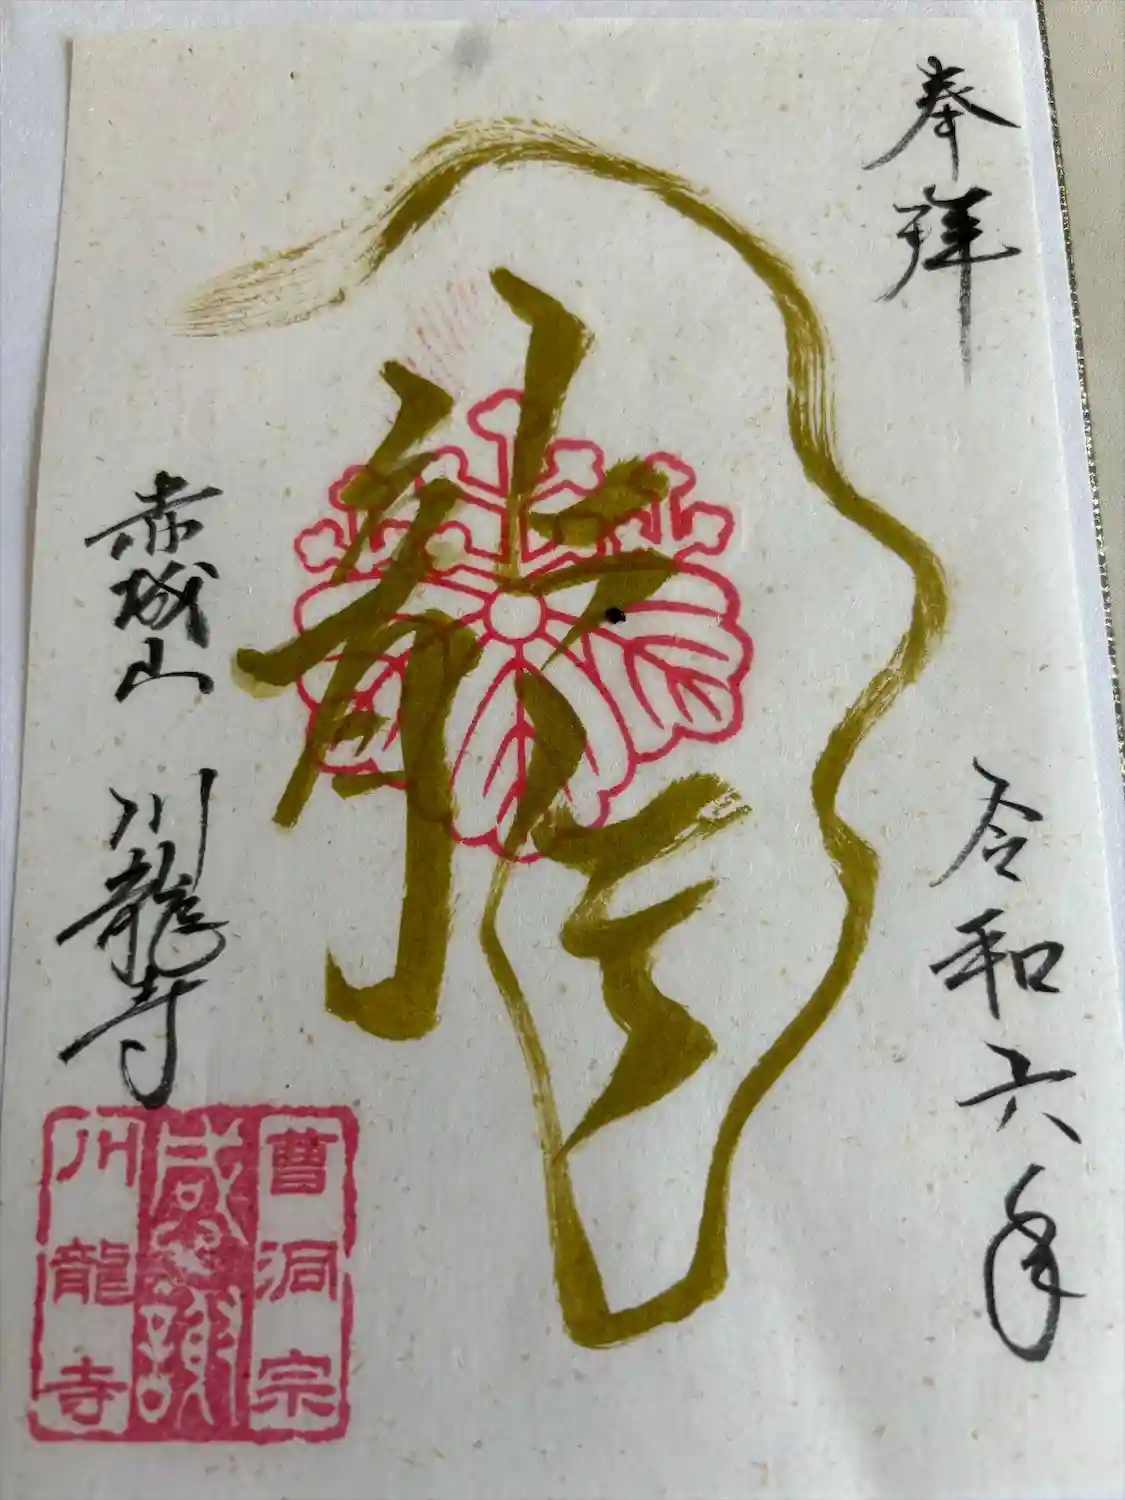 奉拝
令和六年
龍
赤城山 川龍寺
曹洞宗
川龍寺